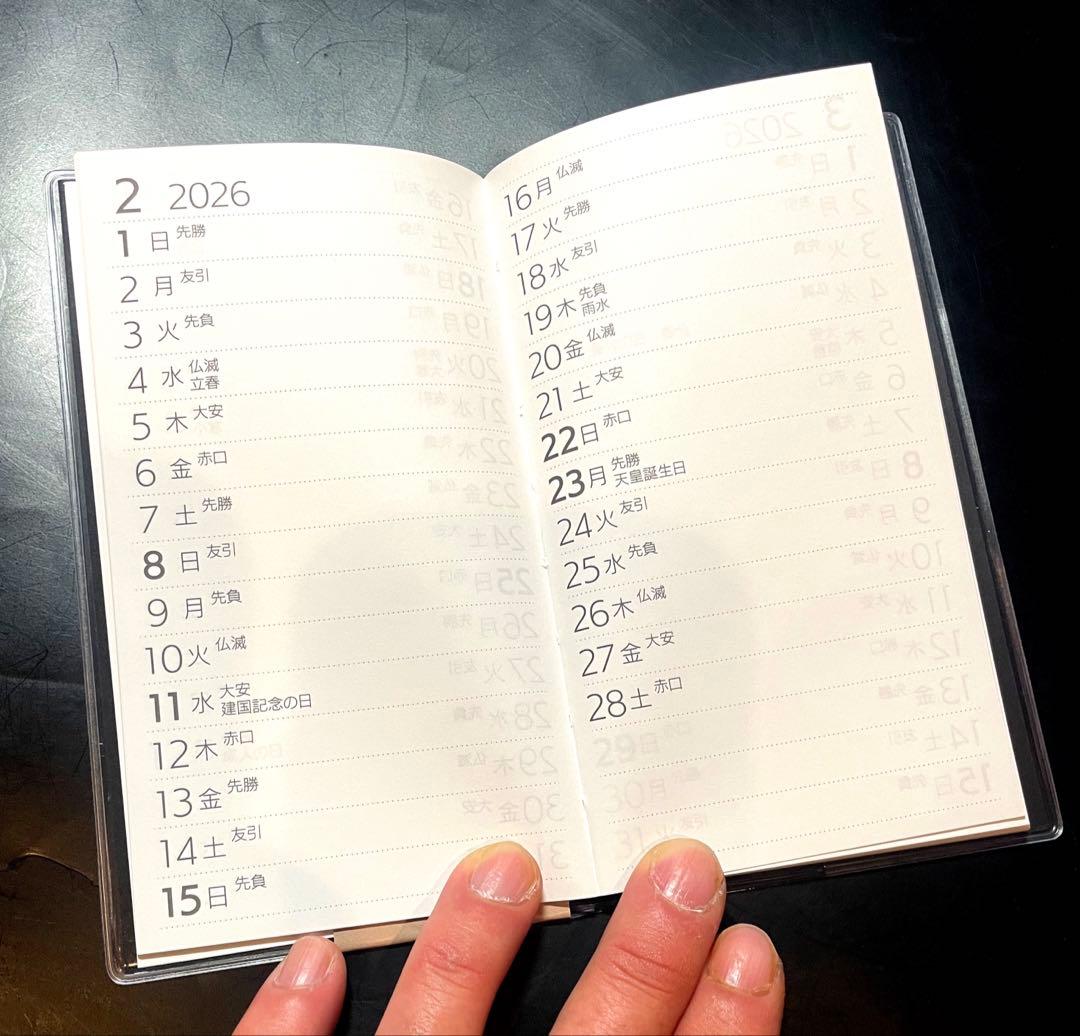 2 2026
1 日 先勝
2 月 友引
3 火 先負
4 水 仏滅
立春
5 木 大安
6 金 赤口
7 土 先勝
8 日 友引
9 月 先負
10 火 仏滅
11 水 大安
建国記念の日
12 木 赤口
13 金 先勝
14 土 友引
15 日 先負
16 月 仏滅
17 火 先勝
18 水 友引
19 木 先負
雨水
20 金 仏滅
21 土 大安
22 日 赤口
23 月 先勝
天皇誕生日
24 火 友引
25 水 先負
26 木 仏滅
27 金 大安
28 土 赤口